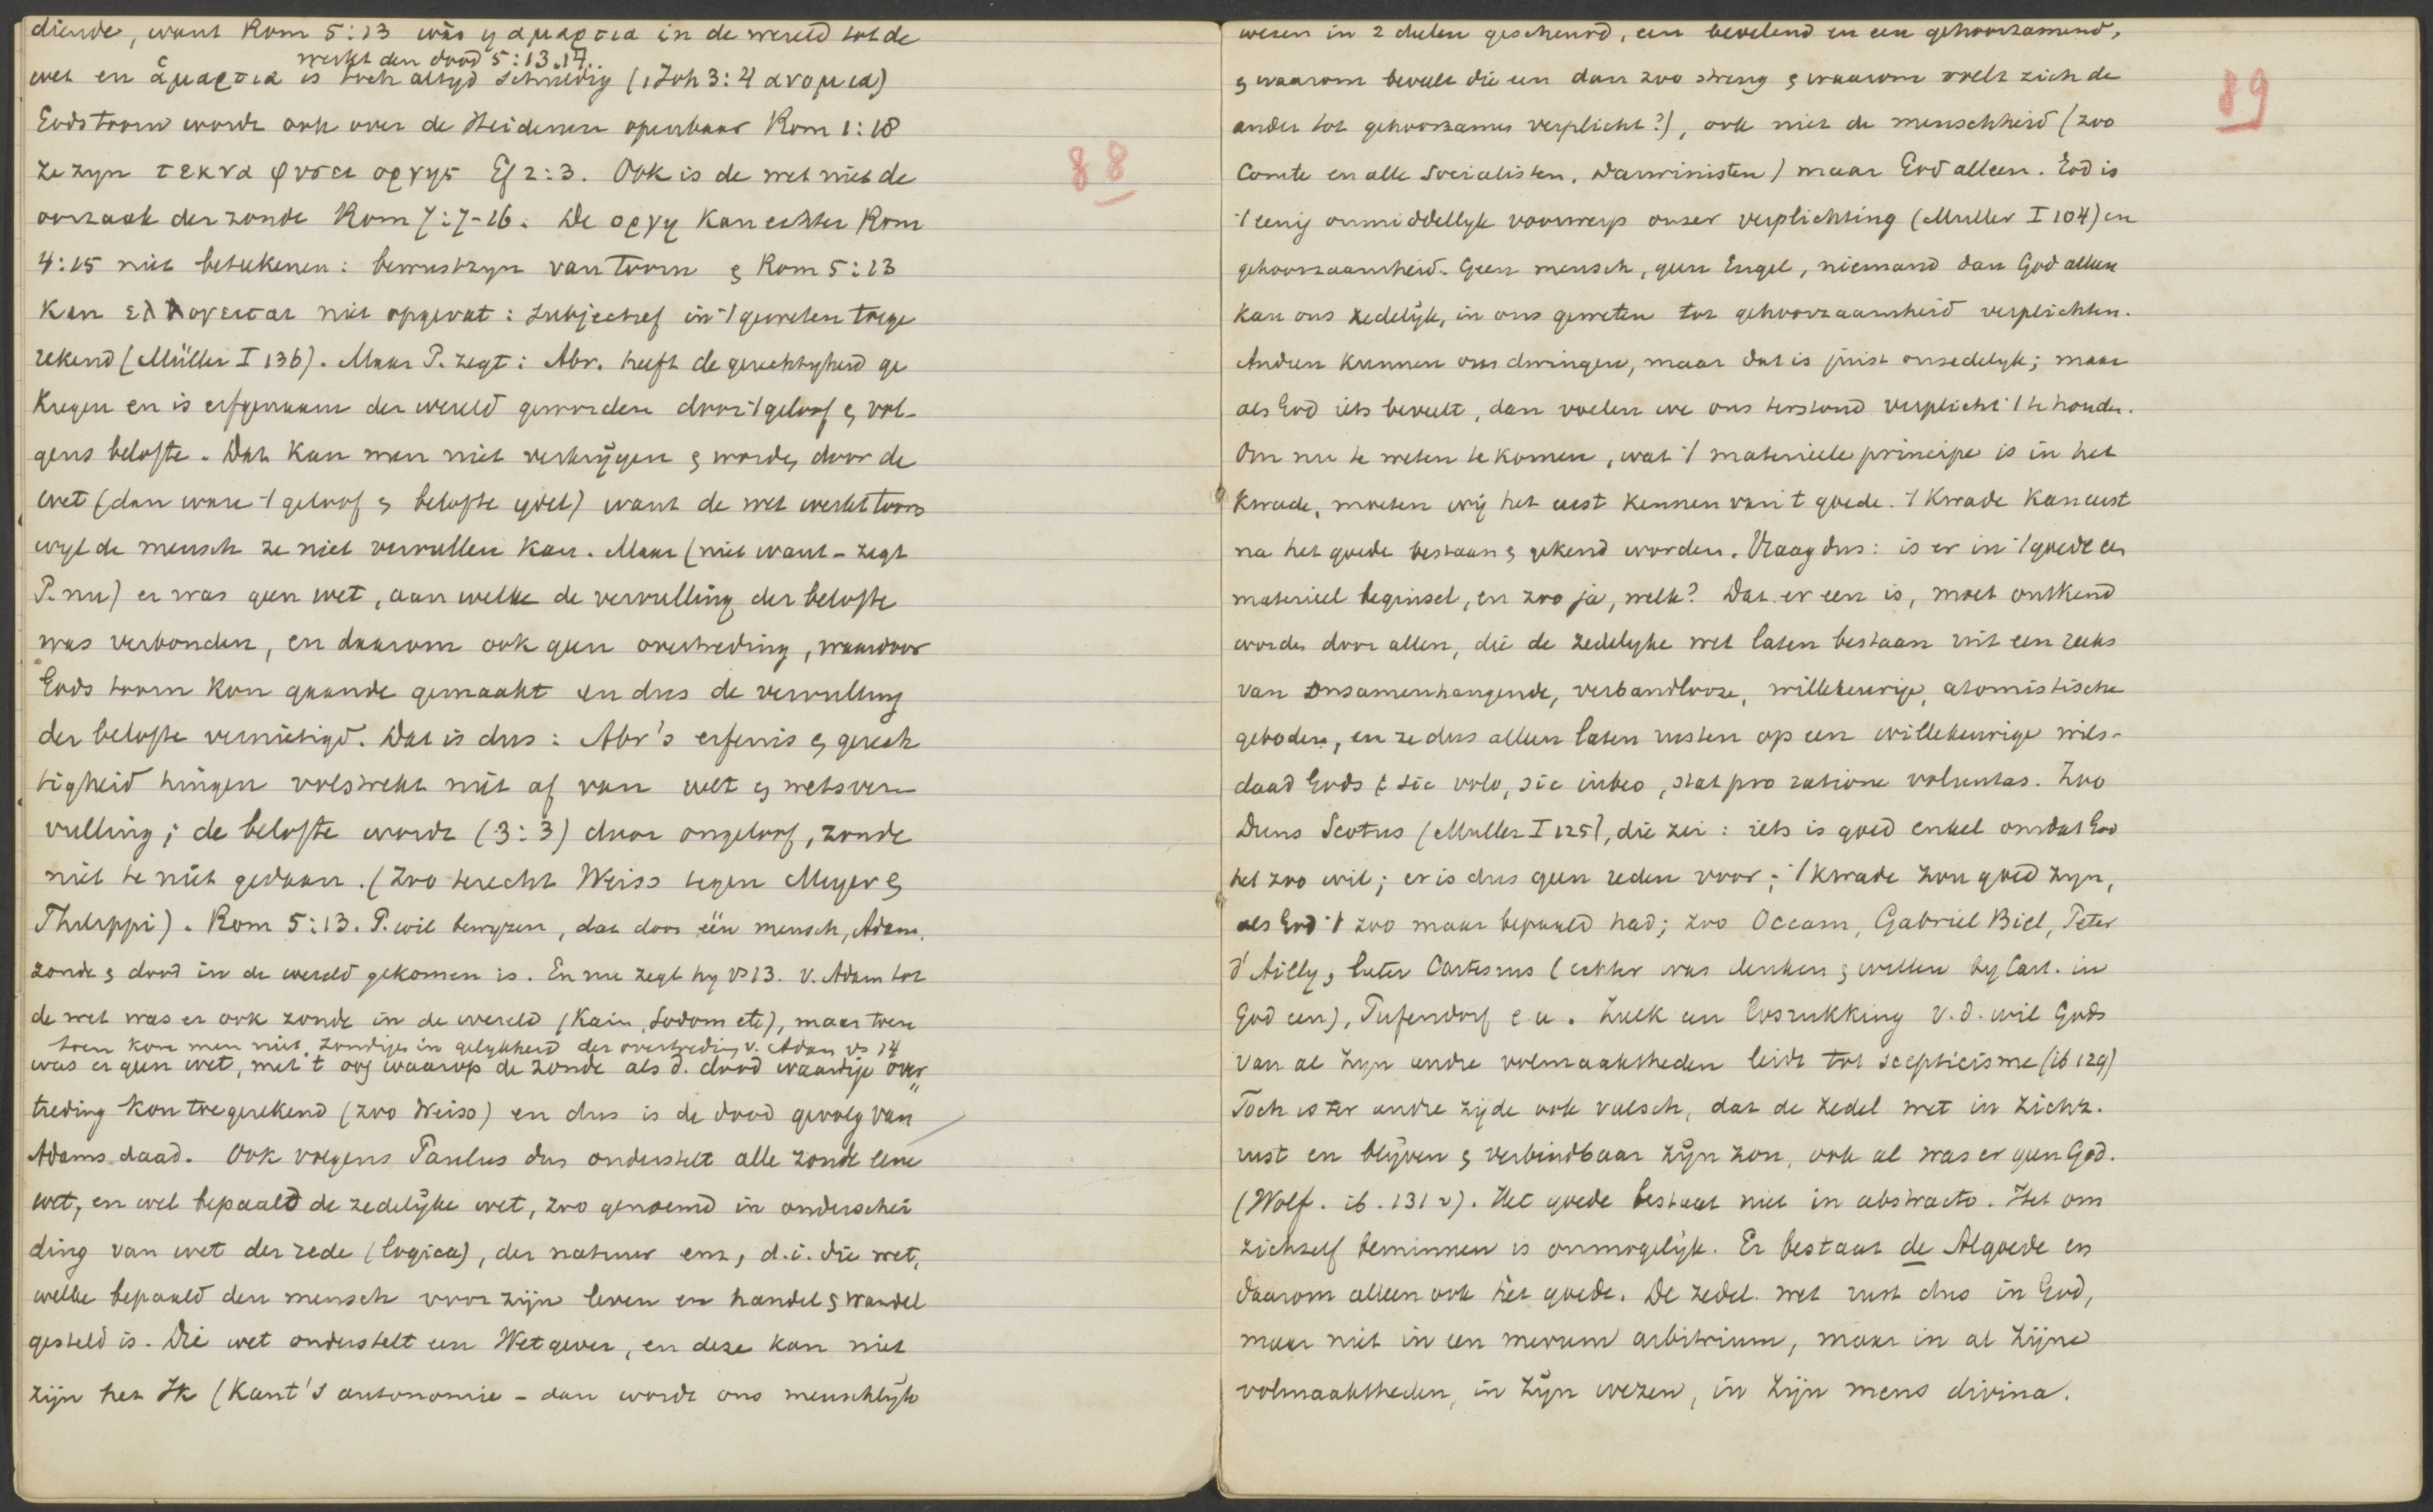 diende, want Rom 5:13 wäs η αμαρτια in de wereld tot de
werkt den dood 5:13.14..
wet en ἁμαρτια is toch altyd schuldig (1 Joh 3:4 ανομια)
Gods toorn wordt ook over de Heidenen openbaar Rom 1:18
ze zyn τεκνα φυσει οργης Ef 2:3. Ook is de wet niet de
oorzaak der zonde Rom 7:7-16. De οργη kan echter Rom
4:15 niet beteekenen: bewustzyn van toorn & Rom 5:13
kan ελλογειται niet opgevat: subjectief in 't geweten toege
rekend (Müller I 136). Maar P. zegt: Abr. heeft de gerechtigheid ge
kregen en is erfgenaam der wereld geworden door 't geloof & vol-
gens belofte. Dat kan men niet verkrijgen & worden door de
wet (dan ware 't geloof & belofte ydel) want de wet werkt toorn
wyl de mensch ze niet vervullen kan. Maar (niet want - zegt
P. nu) er was geen wet, aan welke de vervulling der belofte
was verbonden, en daarom ook geen overtreding, waardoor
Gods toorn kon gaande gemaakt en dus de vervulling
der belofte vernietigd. Dat is dus: Abr's erfenis & gerech
tigheid hingen volstrekt niet af van wet & wetsver-
vulling; de belofte wordt (3:3) door ongeloof, zonde
niet te niet gedaan. (Zoo terecht Weiss tegen Meyer &
Philippi). Rom 5:13. P. wil bewyzen, dat door één mensch, Adam,
zonde & dood in de wereld gekomen is. En nu zegt hy vs 13. v. Adam tot
de wet was er ook zonde in de wereld (Kain, Sodom etc), maar toen
toen kon men niet zondigen in gelykheid der overtreding v. Adam vs 14
was er geen wet, met 't oog waarop de zonde als d. dood waardige over
treding kon toegerekend (zoo Weiss) en dus is de dood gevolg van
Adams daad. Ook volgens Paulus dus onderstelt alle zonde eene
wet, en wel bepaald de zedelijke wet, zoo genoemd in onderschei
ding van wet der rede (logica), der natuur enz, d.i. die wet,
welke bepaald den mensch voor zijn leven en handel & wandel
gesteld is. Die wet onderstelt een Wetgever, en deze kan niet
zijn het Ik (Kant's autonomie - dan wordt ons menschlijk
88
wezen in 2 deelen gescheurd, een bevelend en een gehoorzamend,
& waarom beveelt die een dan zoo streng & waarom voelt zich de
ander tot gehoorzamen verplicht?), ook niet de menschheid (zoo
Comte en alle Socialisten, Darwinisten) maar God alleen. God is
't eenig onmiddellyk voorwerp onzer verplichting (Muller I 104) en
gehoorzaamheid. Geen mensch, geen Engel, niemand dan God alleen
kan ons zedelijk, in ons geweten tot gehoorzaamheid verplichten.
Anderen kunnen ons dwingen, maar dat is juist onzedelyk; maar
als God iets beveelt, dan voelen we ons terstond verplicht 't te houden.
Om nu te weten te komen, wat 't materieele principe is in het
kwade, moeten wij het eerst kennen van 't goede. 't Kwade kan eerst
na het goede bestaan & gekend worden. Vraag dus: is er in 't goede een
materieel beginsel, en zoo ja, welk? Dat er een is, moet ontkend
worden door allen, die de zedelyke wet laten bestaan uit een reeks
van onsamenhangende, verbandlooze, willekeurige, atomistische
geboden, en ze dus alleen laten rusten op een willekeurige wils-
daad Gods: sic volo, sic iubeo, stat pro ratione voluntas. Zoo
Duns Scotus (Muller I 125), die zei: iets is goed enkel omdat God
het zoo wil; er is dus geen reden voor; 't kwade zou goed zyn,
als God 't zoo maar bepaald had; zoo Occam, Gabriel Biel, Peter
d'Ailly, later Cartesius (echter was denken & willen by Cart. in
God een), Pufendorf e.a. Zulk een losrukking v.d. wil Gods
van al zyn andre volmaaktheden leidt tot scepticisme (ib 129)
Toch is ter andre zijde ook valsch, dat de zedel. wet in zichz.
rust en blijven & verbindbaar zijn zou, ook al was er geen God.
(Wolf. ib. 131 v). Het goede bestaat niet in abstracto. Het om
zichzelf beminnen is onmogelijk. Er bestaat de Algoede en
daarom alleen ook het goede. De zedel. wet rust dus in God,
maar niet in een merum arbitrium, maar in al zijne
volmaaktheden, in zijn wezen, in zijn mens divina.
89